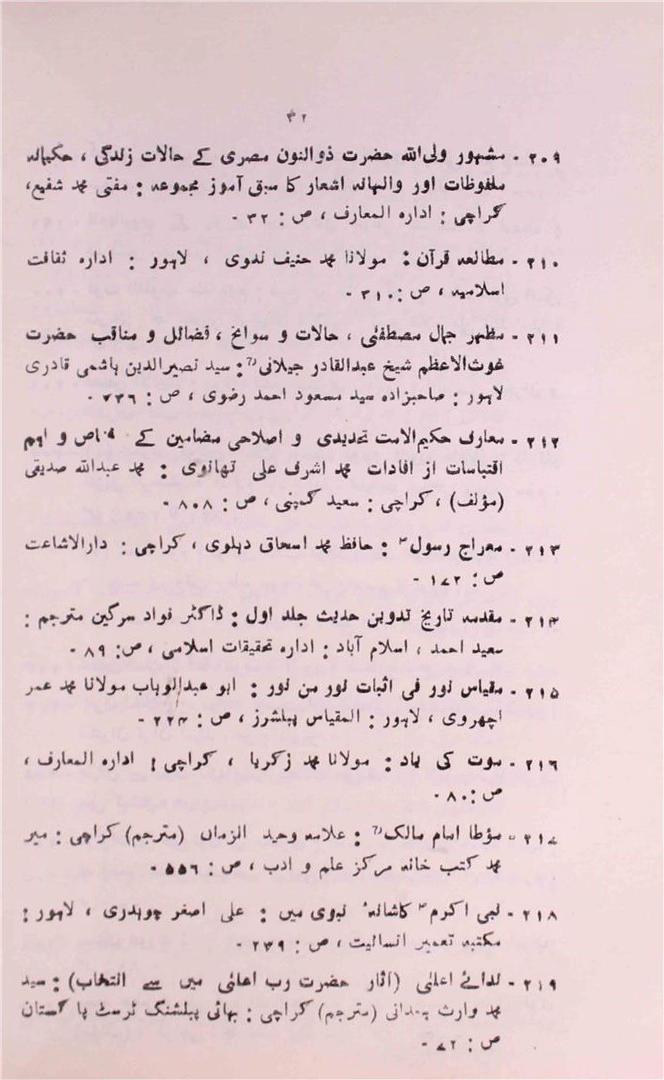 ۴۲
۲۰۹ - مشہور ولی‌اللہ حضرت ذوالنون مصری کے حالات زندگی ، حکیمانہ
ملفوظات اور والہانہ اشعار کا سبق آموز مجموعہ : مفتی محمد شفیع،
کراچی : ادارہ المعارف ، ص : ۳۲ -
۲۱۰ - مطالعہ قرآن : مولانا محمد حنیف ندوی ، لاہور : ادارہ ثقافت
اسلامیہ ، ص : ۳۱۰ -
۲۱۱ - مظہر جمال مصطفٰی ، حالات و سوانح ، فضائل و مناقب حضرت
غوث‌الاعظم شیخ عبدالقادر جیلانی رح : سید نصیرالدین ہاشمی قادری
لاہور : صاحبزادہ سید مسعود احمد رضوی ، ص : ۳۳۶ -
۲۱۲ - معارف حکیم‌الامت تجدیدی و اصلاحی مضامین کے خاص و اہم
اقتباسات از افادات محمد اشرف علی تھانوی : محمد عبداللہ صدیقی
(مؤلف) ، کراچی : سعید کمپنی ، ص : ۸۰۸ -
۲۱۳ - معراج رسول ؐ : حافظ محمد اسحاق دہلوی ، کراچی : دارالاشاعت
ص : ۱۷۲ -
۲۱۴ - مقدمہ تاریخ تدوین حدیث جلد اول : ڈاکٹر فواد سرگین مترجم :
سعید احمد ، اسلام آباد : ادارہ تحقیقات اسلامی ، ص : ۸۹ -
۲۱۵ - مقیاس نور فی اثبات نور من نور : ابو عبدالوہاب مولانا محمد عمر
اچھروی ، لاہور : المقیاس پبلشرز ، ص : ۲۲۴ -
۲۱۶ - موت کی یاد : مولانا محمد زکریا ، کراچی : ادارہ المعارف ،
ص : ۸۰ -
۲۱۷ - مؤطا امام مالک رح : علامہ وحید الزماں (مترجم) کراچی : میر
محمد کتب خانہ مرکز علم و ادب ، ص : ۵۵۶ -
۲۱۸ - نبی اکرم ؐ کاشانۂ نبوی میں : علی اصغر چوہدری ، لاہور :
مکتبہ تعمیر انسانیت ، ص : ۲۳۹ -
۲۱۹ - ندائے اعلیٰ (آثار حضرت رب اعلیٰ میں سے انتخاب) : سید
محمد وارث ہمدانی (مترجم) کراچی : بہائی پبلشنگ ٹرسٹ پاکستان
ص : ۷۲ -